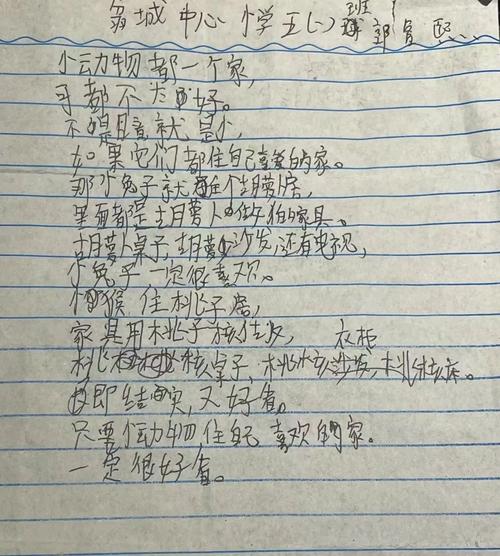 翁城中心小学五(一)班 郭
小动物都一个家,
可都不太好。
不是暗,就是小,
如果它们都住自己喜爱的家。
那小兔子就住个胡萝卜房,
里面都是胡萝卜做的家具。
胡萝卜桌子,胡萝卜沙发,还有电视,
小兔子一定很喜欢。
小猴住桃子房,
家具用桃子核做
衣柜
桃核桌子,桃核沙发,桃核床。
即结实,又好看。
只要小动物住自己喜欢的家。
一定很好看。